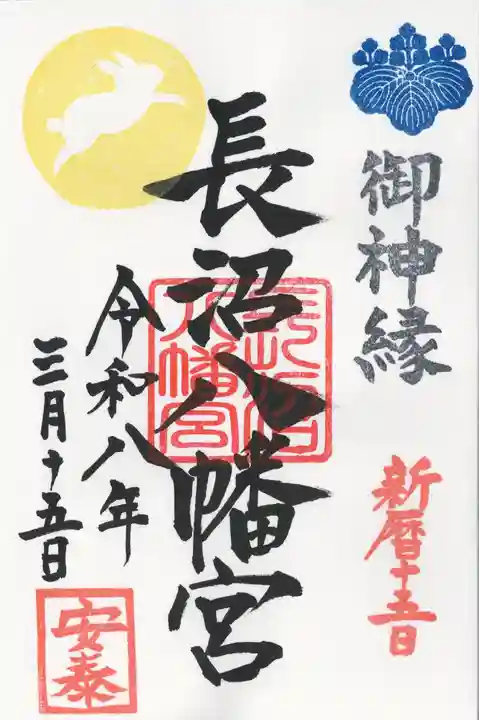 御神縁
新暦十五日
長沼八幡宮
長沼八幡宮
令和八年
三月十五日
安泰